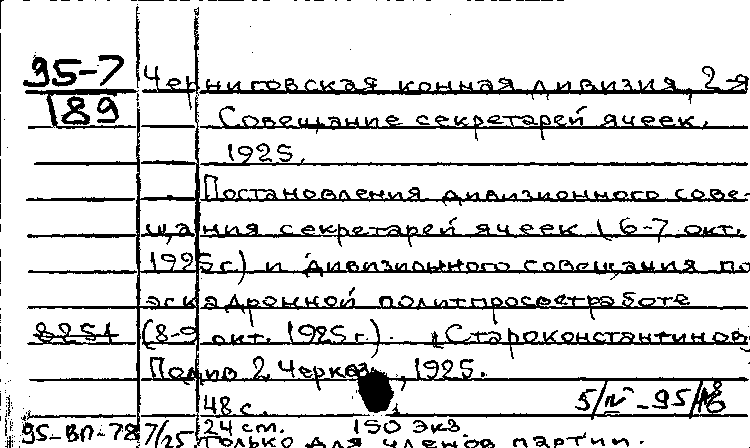 95-7 Черниговская конная дивизия, 2-я
189 Совещание секретарей ячеек.
1925.
Постановления дивизионного сове-
щания секретарей ячеек (6-7 окт.
1925 г.) и дивизионного совещания по
эскадронной политпросветработе
8251 (8-9 окт. 1925 г.). [Староконстантинов
Подив 2 Черказ , 1925.
48 с. 5/IV-95/
24 cm. 150 экз.
95-ВП-78 7/25 Только для членов партии.